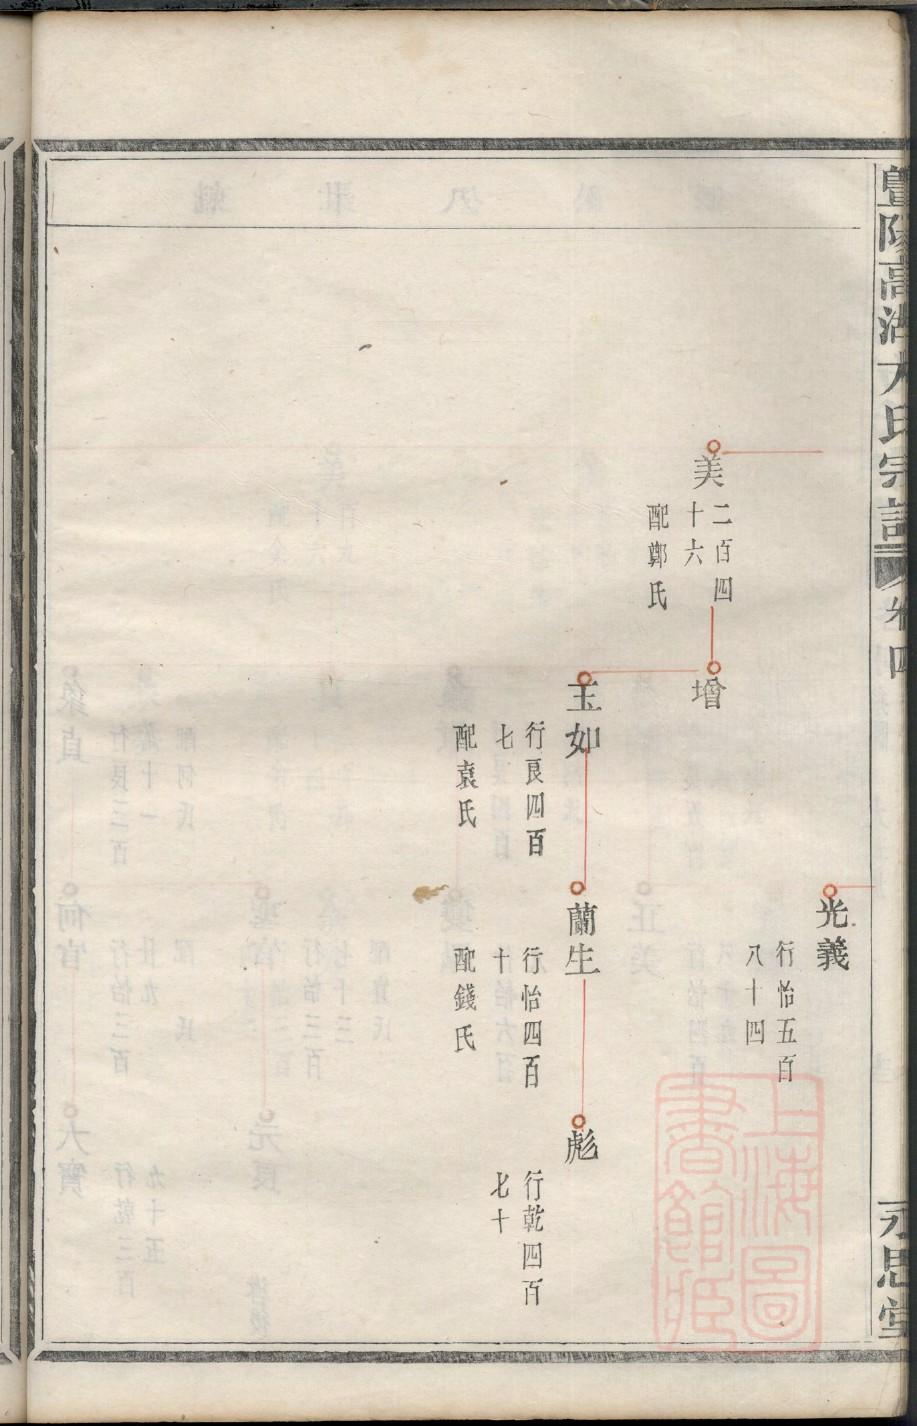 暨陽高湖方氏宗譜
卷四
永思堂
光義
行怡五百
八十四
美
二百四
十六
配鄭氏
增
玉如
行良四百
七
配袁氏
蘭生
行怡四百
十
配錢氏
彪
行乾四百
七十
上海圖
書館藏